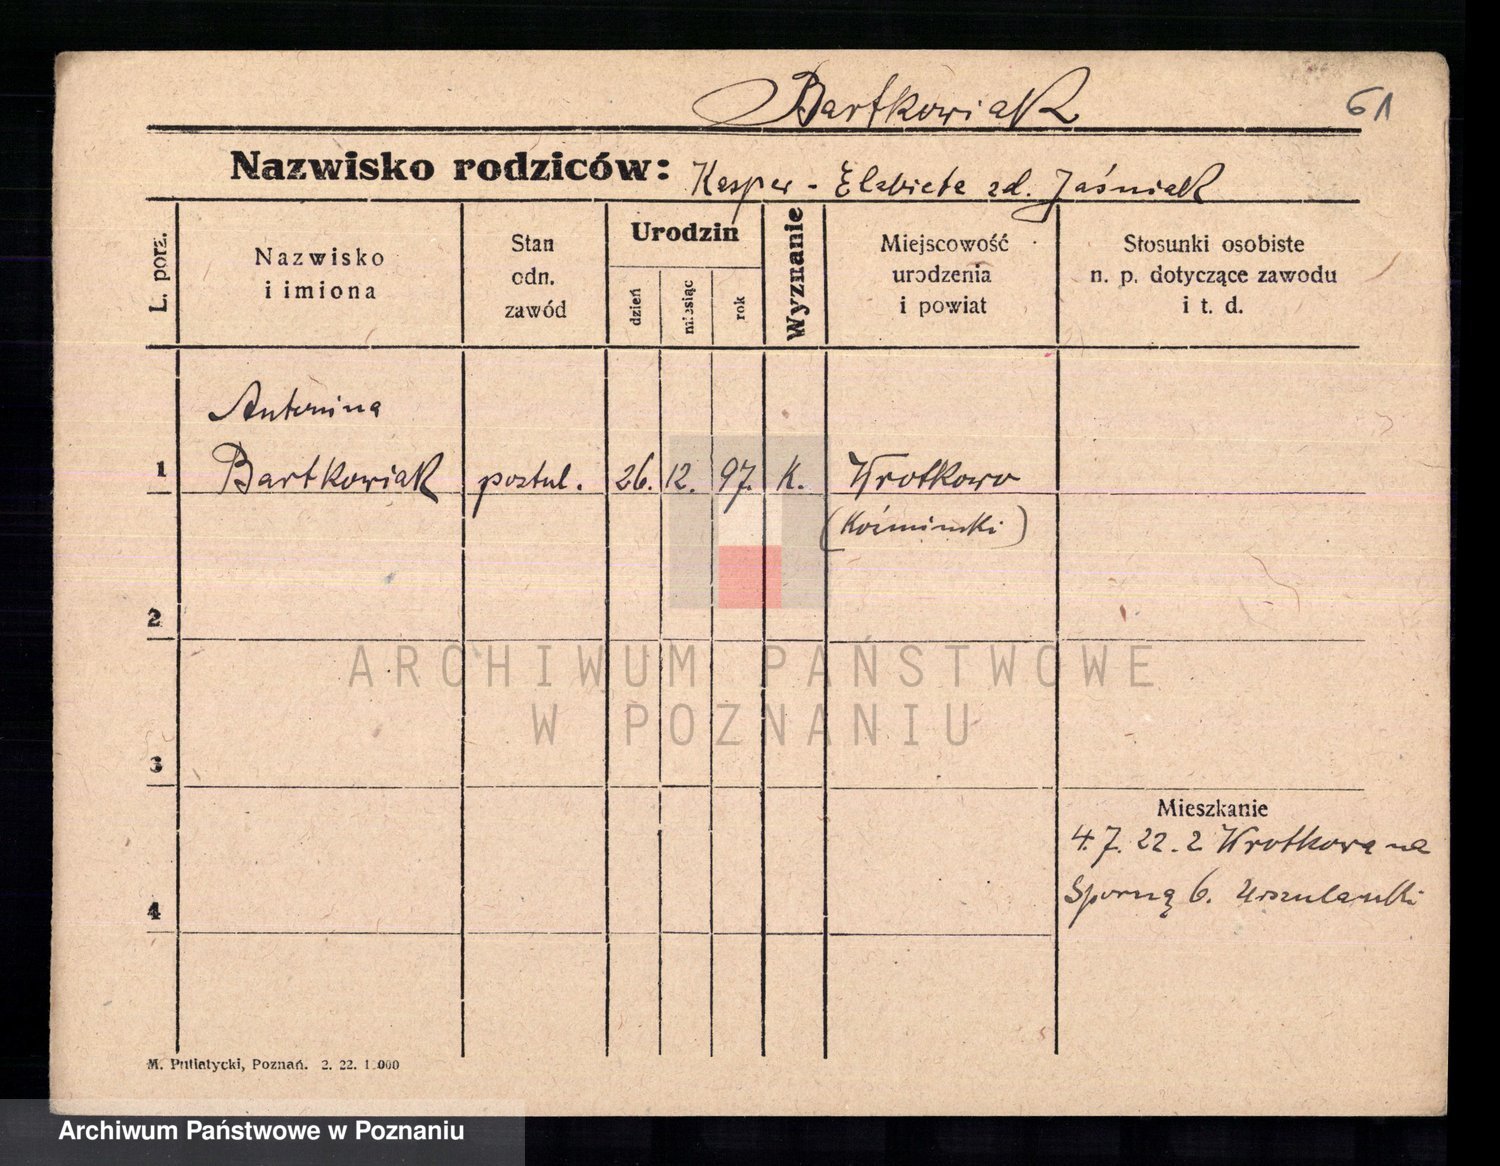 Bartkowiak 61
Nazwisko rodziców: Kasper - Elżbieta zd. Jaśniak
L. porz.
Nazwisko
i imiona
Stan
odn.
zawód
Urodzin
dzień
miesiąc
rok
Wyznanie
Miejscowość
urodzenia
i powiat
Stosunki osobiste
n. p. dotyczące zawodu
i t. d.
Antonina
1 Bartkowiak postul. 26. 12. 97. K. Wrotkowo
(Koźmiński)
2
3
ARCHIWUM PAŃSTWOWE
W POZNANIU
Mieszkanie
4. 7. 22. z Wrotkowa na
4 Sporną 6. Urszulanki
M. Putiatycki, Poznań. 2. 22. 1 000
Archiwum Państwowe w Poznaniu